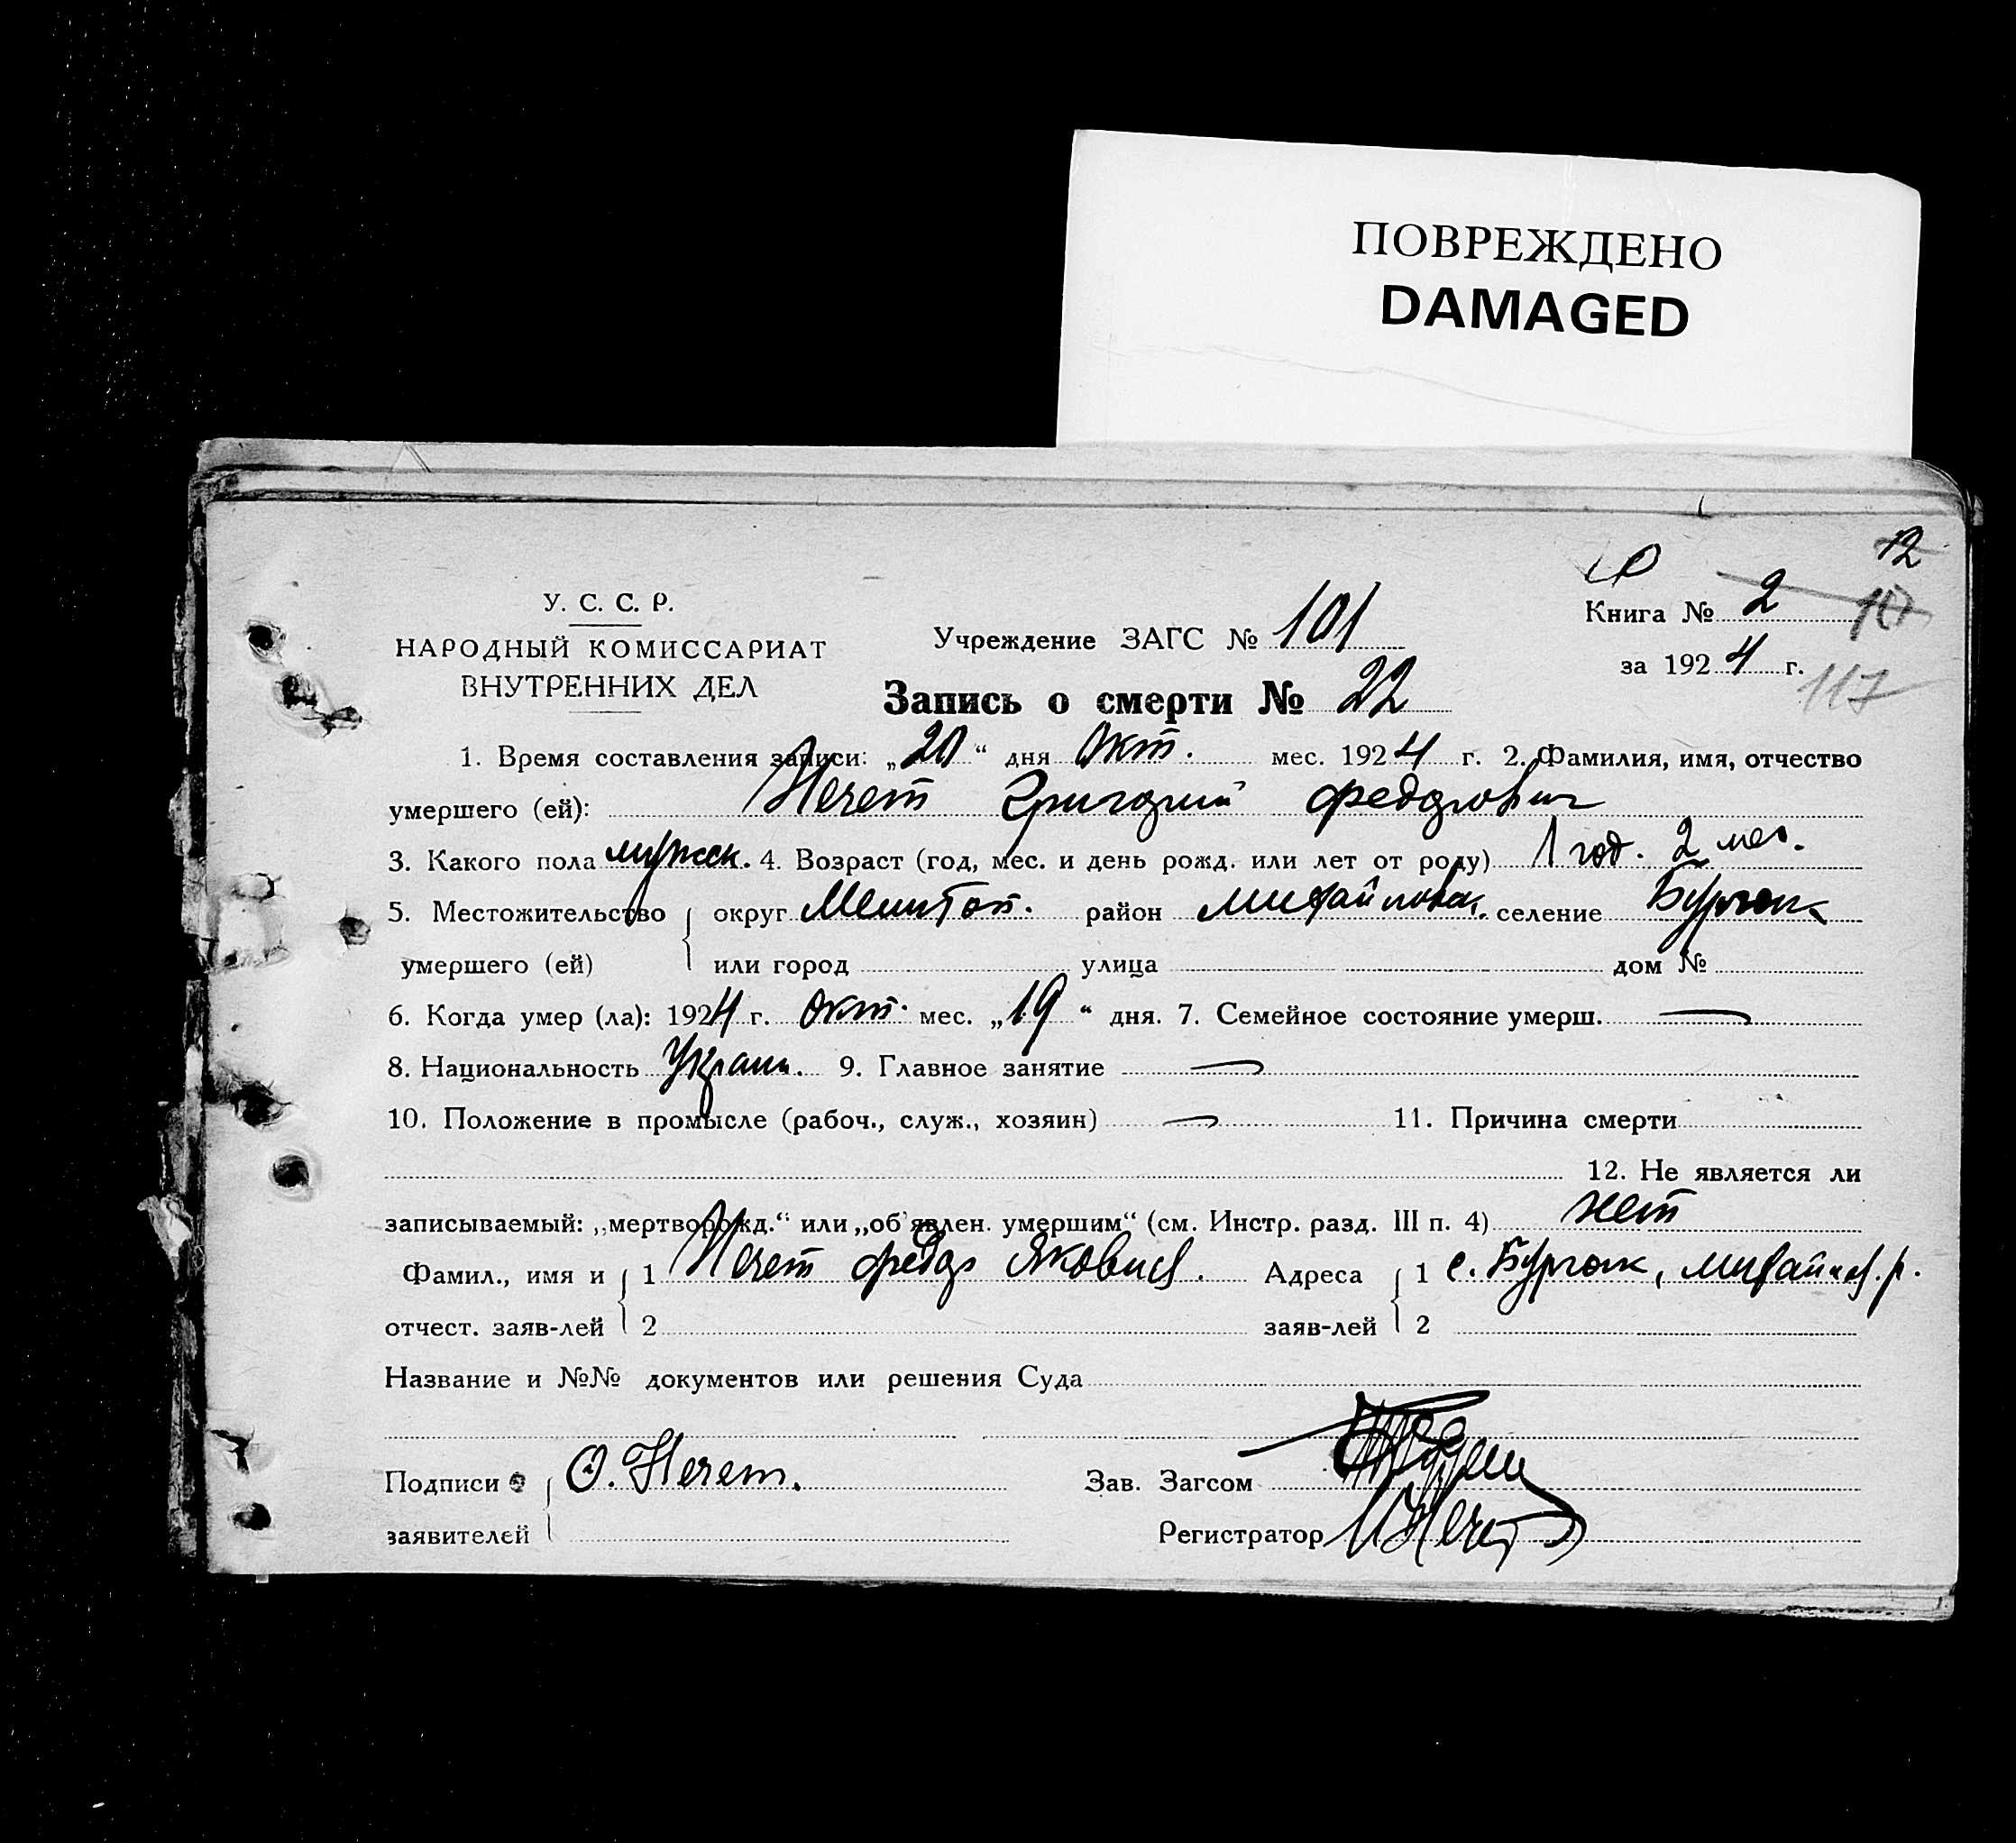 ПОВРЕЖДЕНО
DAMAGED
12
У. С. С. Р.
НАРОДНЫЙ КОМИССАРИАТ
ВНУТРЕННИХ ДЕЛ
Учреждение ЗАГС № 101
Книга № 2 10
за 1924 г. 117
Запись о смерти № 22
1. Время составления записи: „20“ дня Окт. мес. 1924 г. 2. Фамилия, имя, отчество
умершего (ей): Нечет Григорий Федорович
3. Какого пола мужск. 4. Возраст (год, мес. и день рожд. или лет от роду) 1 год. 2 мес.
5. Местожительство округ Мелитоп. район Михайловск. селение Бурчак
умершего (ей) или город улица дом №
6. Когда умер (ла): 1924 г. окт. мес. „19“ дня. 7. Семейное состояние умерш. —
8. Национальность Украин. 9. Главное занятие —
10. Положение в промысле (рабоч., служ., хозяин) — 11. Причина смерти
12. Не является ли
записываемый: „мертворожд.“ или „об'явлен. умершим“ (см. Инстр. разд. III п. 4) нет
Фамил., имя и 1 Нечет Федор Яковлев. Адреса 1 с. Бурчак, михайлов. р.
отчест. заяв-лей 2 заяв-лей 2
Название и №№ документов или решения Суда
Подписи Ф. Нечет. Зав. Загсом
заявителей Регистратор Нечет